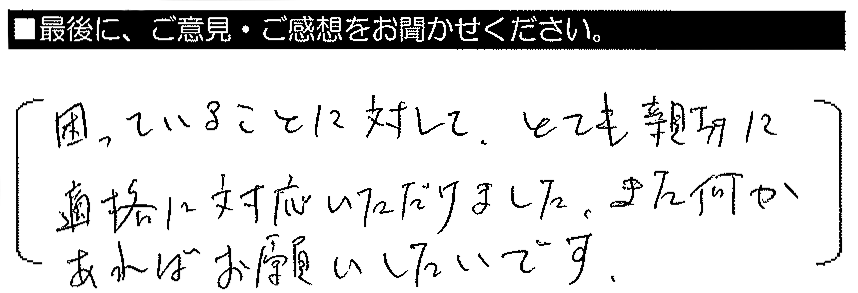 ■最後に、ご意見・ご感想をお聞かせください。
困っていることに対して、とても親切に
適格に対応いただけました、また何か
あればお願いしたいです.